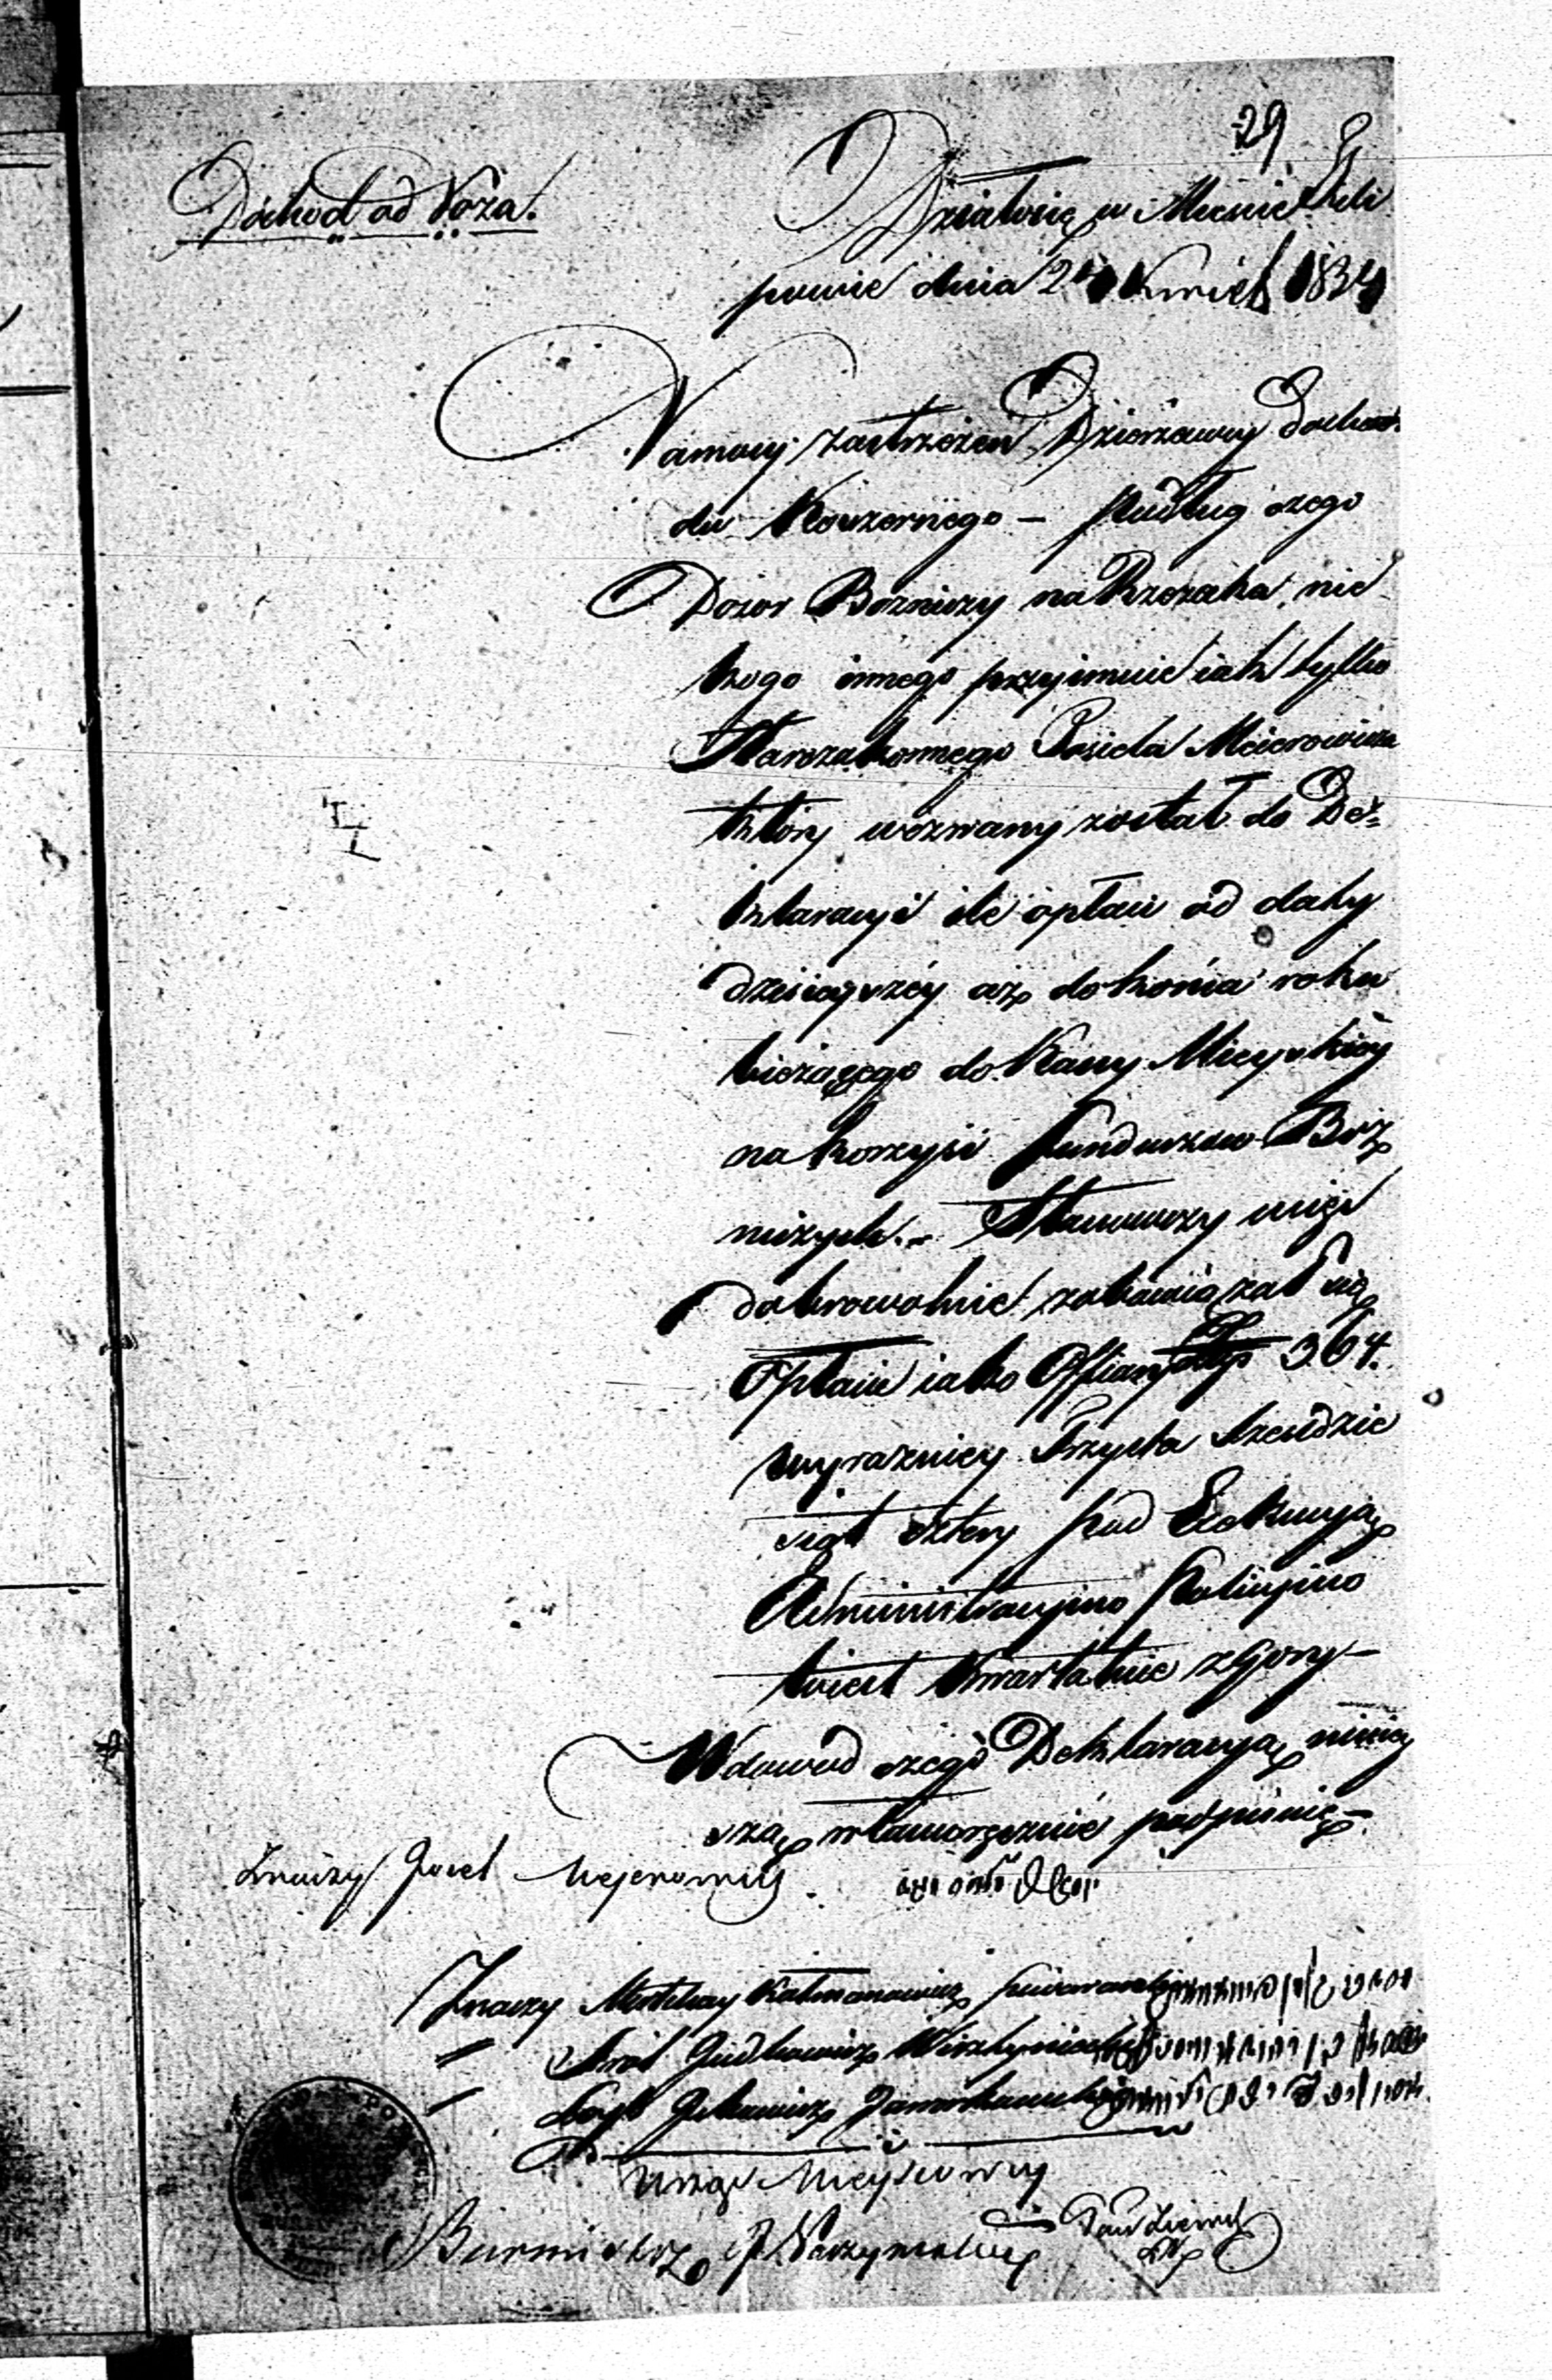 29
Dochod od Noża.
Działo się w Mieście Fili
powie dnia 24 Kwiet 1834
Na mocy zastrzeżeń Dzierżawy Docho
du Koszernego – Podług czego
Dozor Bozniczy na Rzezaka, nie
kogo innego przyimuie iak tylko
Starozakonnego Josela Meierowicza
który wezwany został do De=
klaracyi ile opłaci od daty
dzisieyszéy aż do końca roku
bieżącego do Kassy Mieyskiéy
na korzyść funduszow Boż
niczych. – Stawaiący więc
dobrowolnie zobowiązał się
Opłacić iako Offiarę 364.
wyrazniey Trzysta szesdzie
siąt cztery pod Exekucyją
Administracyino Policyino
kwartalnie zgory –
W dowod czego Deklaracyą niniey
szą własnoręcznie podpisuie –
Znaczy Josel Mejerowicz
Znaczy Mortchay Kalmanowicz
" Srol Judkowicz Wisztyniecki
"
Urząd Mieyscowy
Burmistrz